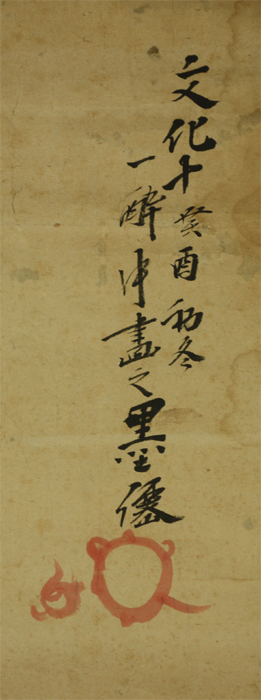 文化十癸酉初冬
一醉中畫之墨僊